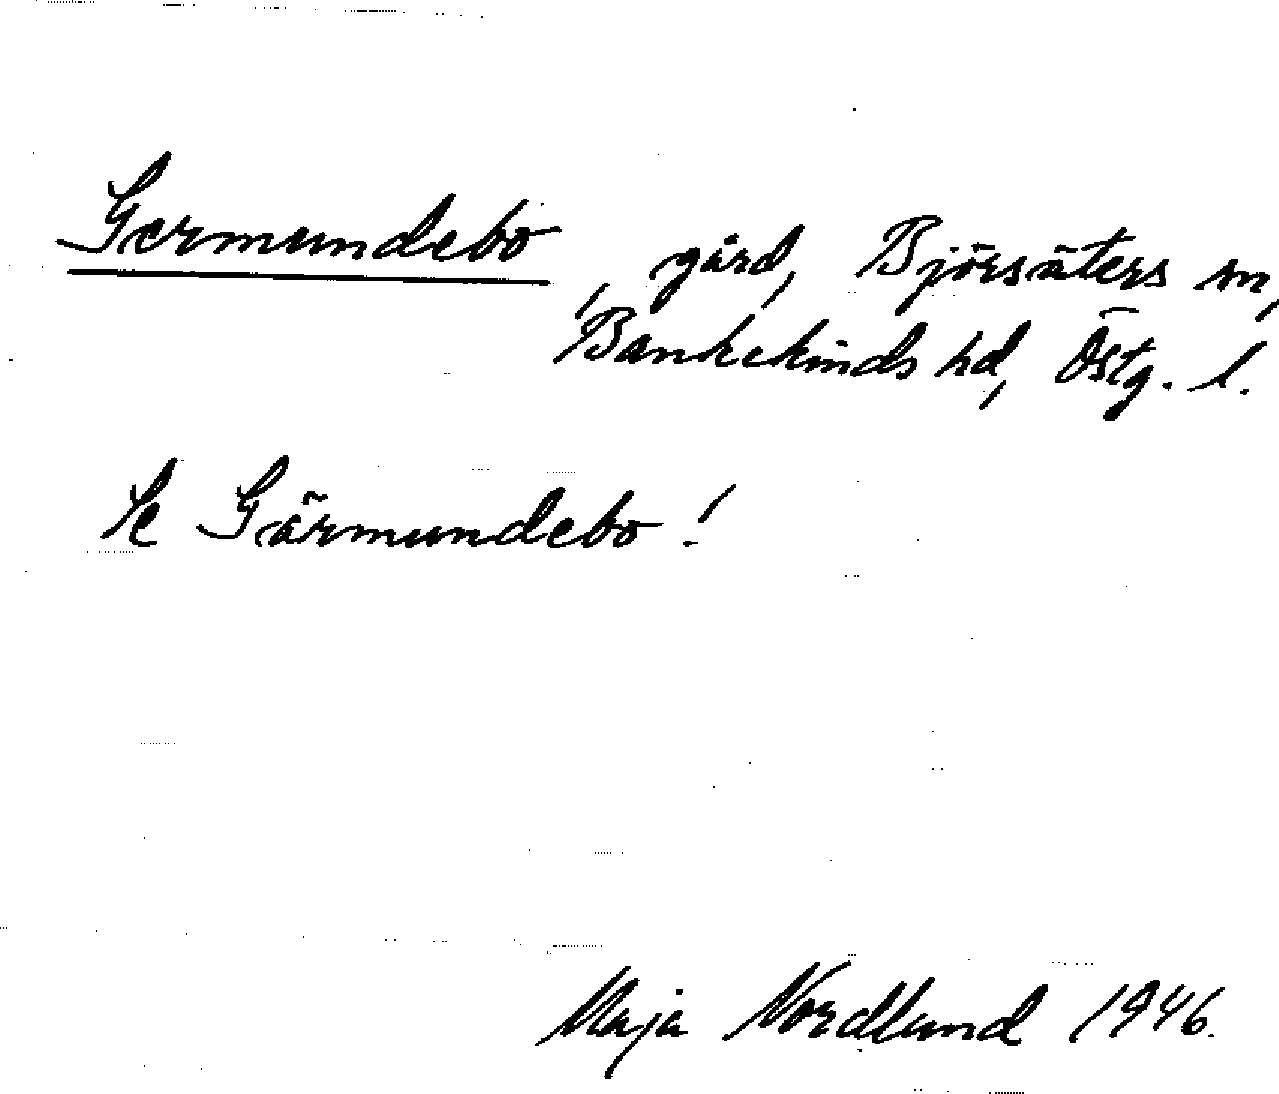 Germundebo, gård, Björsäters sn,
Bankekinds hd, Östg. l.
Se Gärmundebo!
Maja Nordlund 1946.